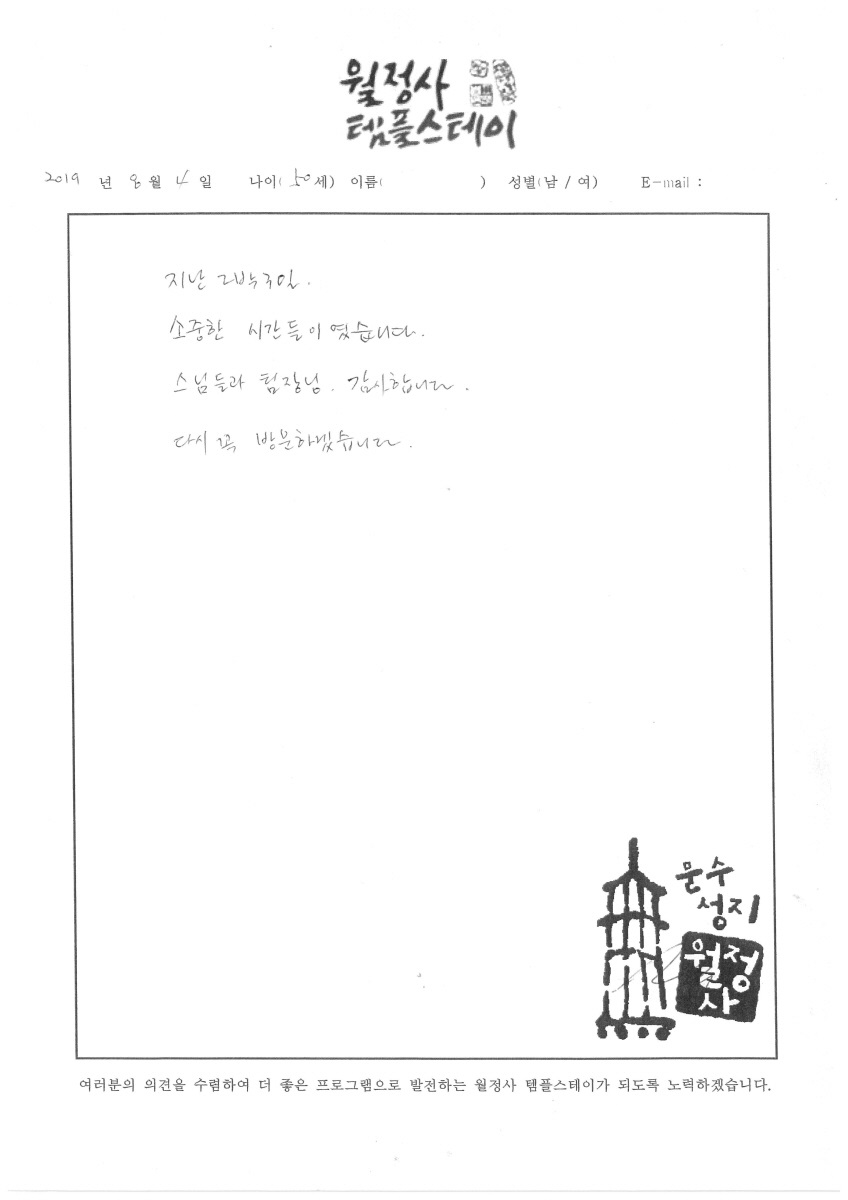 월정사
템플스테이
2019 년 8 월 4 일 나이( 50 세) 이름( ) 성별(남 / 여) E-mail :
지난 2박3일.
소중한 시간들이였습니다.
스님들과 팀장님. 감사합니다.
다시 꼭 방문하겠습니다.
문수
성지
월정
사
여러분의 의견을 수렴하여 더 좋은 프로그램으로 발전하는 월정사 템플스테이가 되도록 노력하겠습니다.